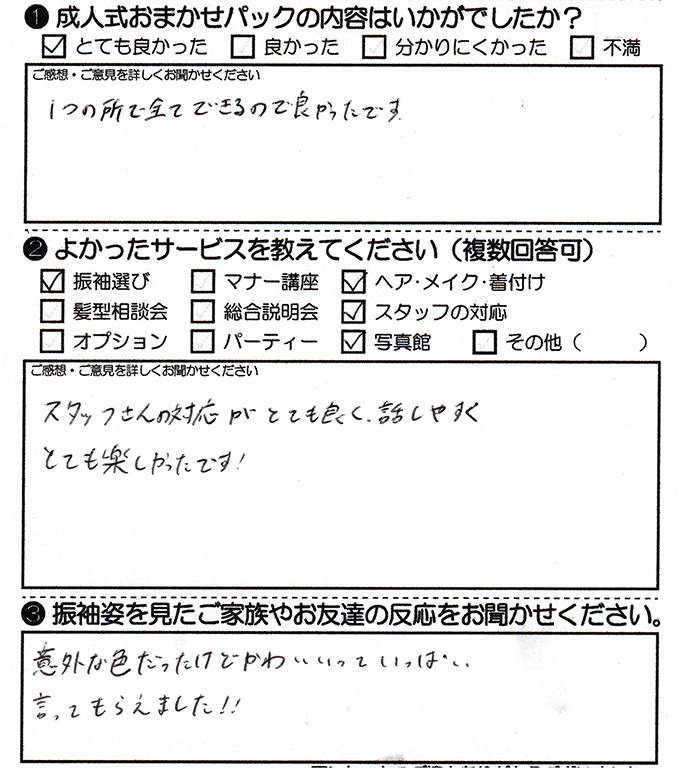 ❶ 成人式おまかせパックの内容はいかがでしたか？
☑ とても良かった □ 良かった □ 分かりにくかった □ 不満
ご感想・ご意見を詳しくお聞かせください
1つの所で全てできるので良かったです
❷ よかったサービスを教えてください（複数回答可）
☑ 振袖選び □ マナー講座 ☑ ヘア・メイク・着付け
□ 髪型相談会 □ 総合説明会 ☑ スタッフの対応
□ オプション □ パーティー ☑ 写真館 □ その他（　　）
ご感想・ご意見を詳しくお聞かせください
スタッフさんの対応がとても良く、話しやすく
とても楽しかったです!
❸ 振袖姿を見たご家族やお友達の反応をお聞かせください。
意外な色だったけどかわいいっていっぱい
言ってもらえました!!